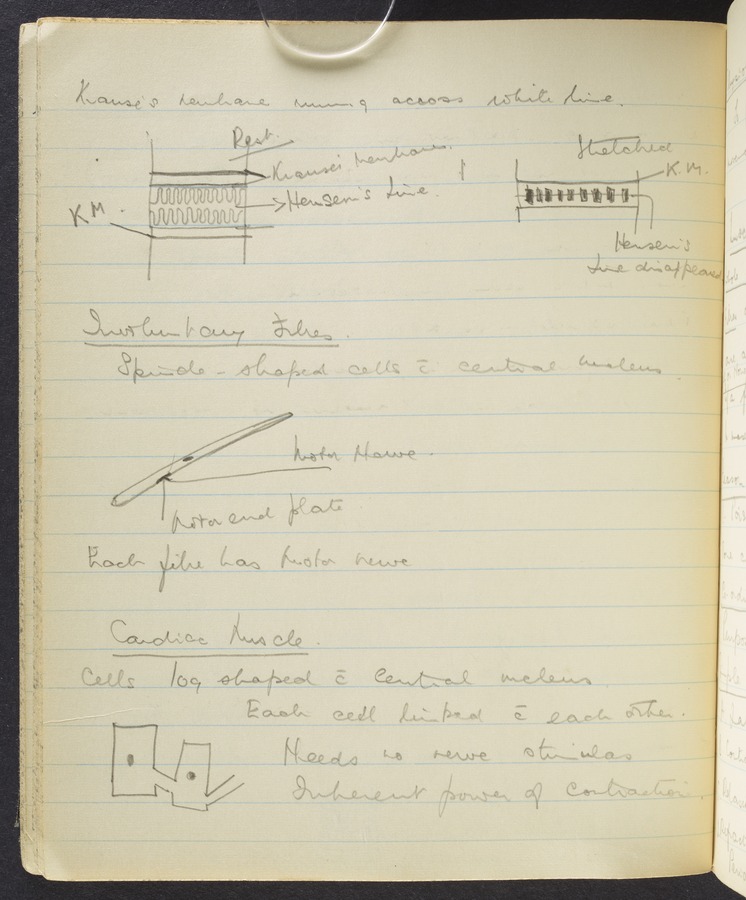 Krause's membrane running across white line.
Rest.
Krause's membrane.
Hensen's Line.
K M.
Stretched
K. M.
Hensen's
Line disappeared
Involuntary Fibres.
Spindle-shaped cells c̄ central nucleus.
Motor Nerve.
Motor end plate
Each fibre has motor nerve
Cardiac Muscle.
Cells log shaped c̄ central nucleus.
Each cell linked c̄ each other.
Needs no nerve stimulas
Inherent power of contraction.